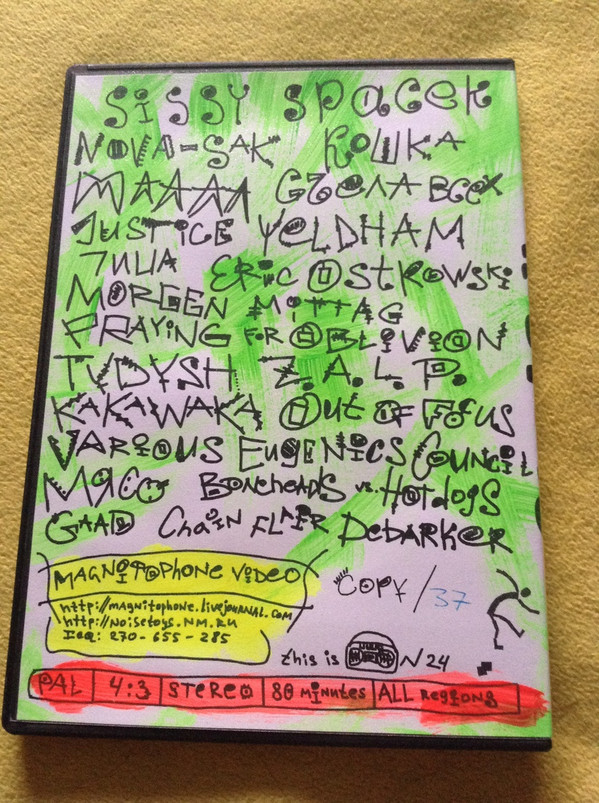 SiSSY SPACEK
NOVA-SAK КОШКА
MAAAA СЪЕЛА ВСЕХ
JUSTICE YELDHAM
7ULIA ERIC OSTROWSKI
MORGEN MITTAG
PRAYING FOR OBLIVION
TVDYSH Z.A.L.P.
KAKAWAKA OUT OF FOCUS
VARIOUS EUGENICS COUNCIL
MACO BONEHEADS vs. HOTDOGS
GAAD CHAIN FLAIR DEBARKER
MAGNITOPHONE VIDEO
http://MAGNITOPHONE.LIVEJOURNAL.COM
http://NOISETOYS.NM.RU
Icq: 270-655-285
COPY / 37
this is N 24
PAL 4:3 STEREO 80 MINUTES ALL REGIONS